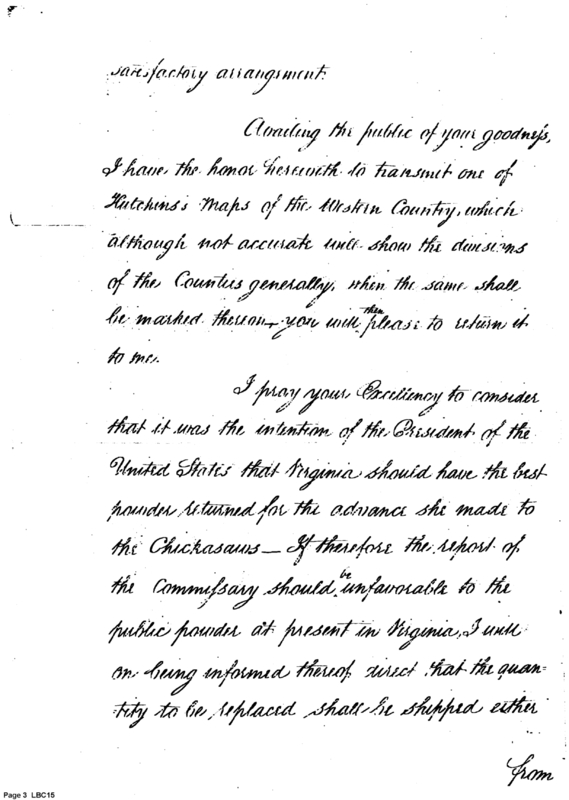 satisfactory arrangment.
Availing the public of your goodness,
I have the honor herewith to transmit one of
Hutchins's Maps of the Western Country, which
although not accurate will show the divisions
of the Counties generally, when the same shall
be marked thereon, you will then please to return it
to me.
I pray your Excellency to consider
that it was the intention of the President of the
United States that Virginia should have the best
powder returned for the advance she made to
the Chickasaws — If therefore the report of
the Commissary should be unfavorable to the
public powder at present in Virginia, I will
on being informed thereof direct that the quan-
tity to be replaced shall be shipped either
from
Page 3 LBC15